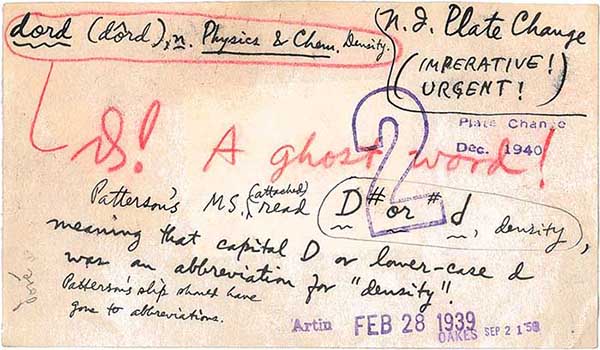 dord (dôrd), n. Physics & Chem. Density.
N. I. Plate Change
(IMPERATIVE!
URGENT!)
Plate Change
Dec. 1940
2
A ghost word!
Patterson's MS. (attached) read D # or # d, density,
meaning that capital D or lower-case d
was an abbreviation for "density"!
Patterson's slip should have
gone to abbreviations.
Artin FEB 28 1939
OAKES SEP 21